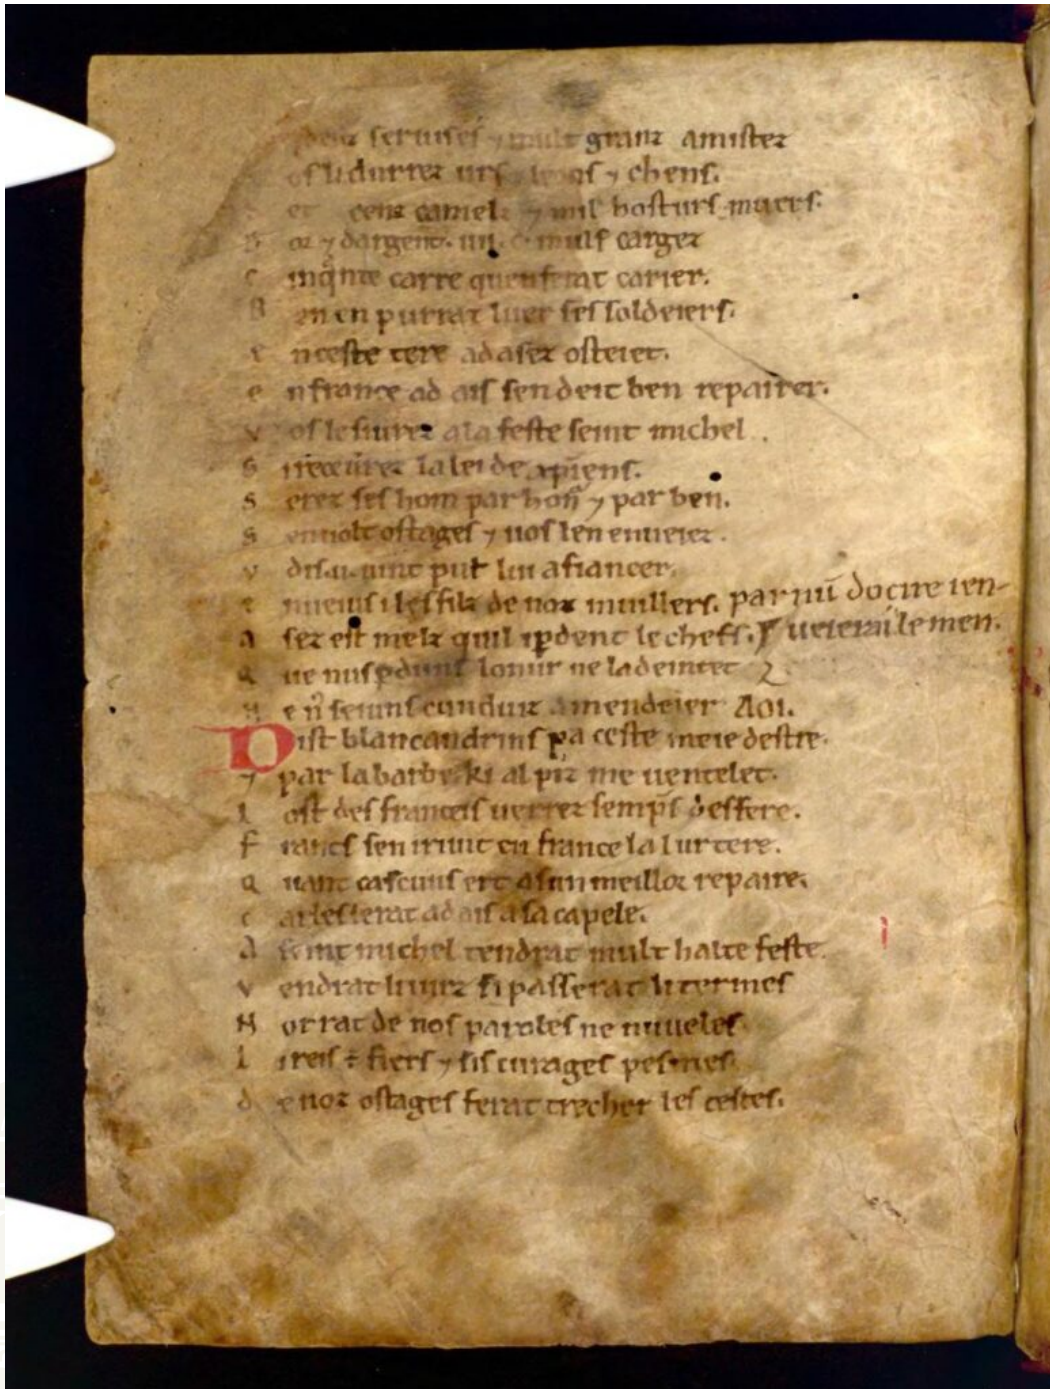 seruises ⁊ mult granz amistez
os li durrez urs ⁊ leuns ⁊ chens.
set cenz camelz ⁊ mil hosturs muers.
D or ⁊ dargent .iiii. c. muls cargez
c inq̃nte carre quen ferat carier.
B en en purrat luer ses soldeiers.
e n ceste tere ad asez osteiet.
e n france ad ais sen deit ben repairer.
v os le siurez a la feste seint michel.
s i receurez la lei de xp̄iens.
s erez ses hom par hon̄ ⁊ par ben.
s en uolt ostages ⁊ uos len enueiez.
v dis. u. uint put lui afiancer.
e nueius i les filz de noz muillers. par nū d ocire ien-
a sez est melz quil i ꝑdent le chefs. ueierai le men.
Q ue nus ꝑduns lonur ne la deintet
N e n̄ seiuns cunduiz a mendeier AOI.
Dist blancandrins pa ceste meie destre.
⁊ par la barbe ki al piz me uentelet.
l ost des franceis uerrez sempˢ desfere.
f rancs sen irunt en france la lur tere.
Q uant cascuns ert a sun meillor repaire.
c arles serat ad ais a sa capele.
A seint michel tendrat mult halte feste.
v endrat li iurz si passerat li termes
N orrat de nos paroles ne nuueles.
l i reis ÷ fiers ⁊ sis curages pesmes.
d e noz ostages ferat trecher les testes.